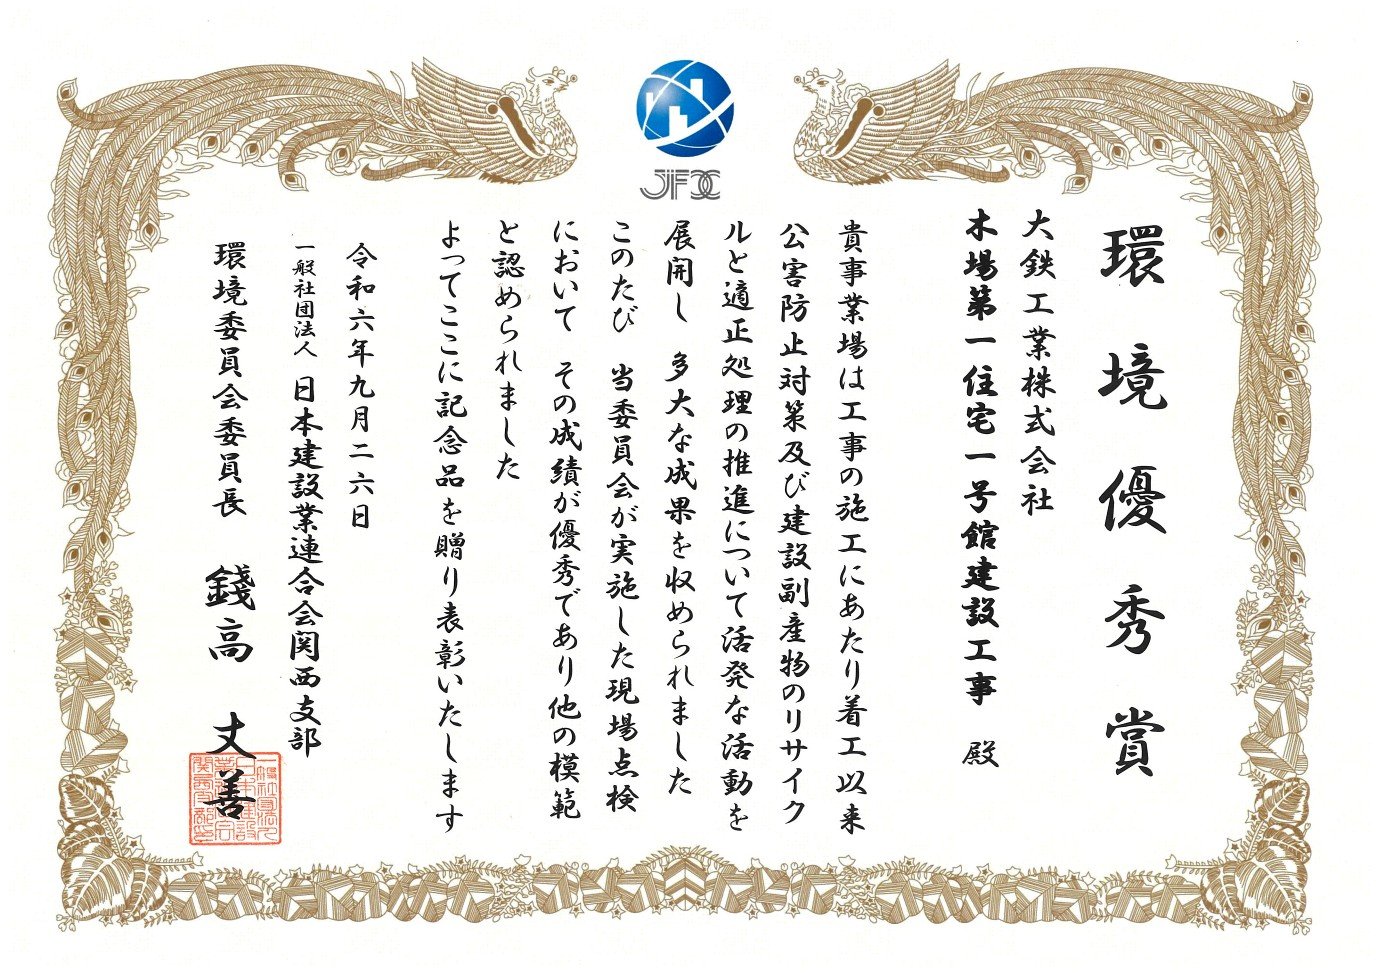 JFCC
環境優秀賞
大鉄工業株式会社
木場第一住宅一号館建設工事 殿
貴事業場は工事の施工にあたり着工以来
公害防止対策及び建設副産物のリサイク
ルと適正処理の推進について活発な活動を
展開し 多大な成果を収められました
このたび 当委員会が実施した現場点検
において その成績が優秀であり他の模範
と認められました
よってここに記念品を贈り表彰いたします
令和六年九月二六日
一般社団法人 日本建設業連合会関西支部
環境委員会委員長 錢高 丈善